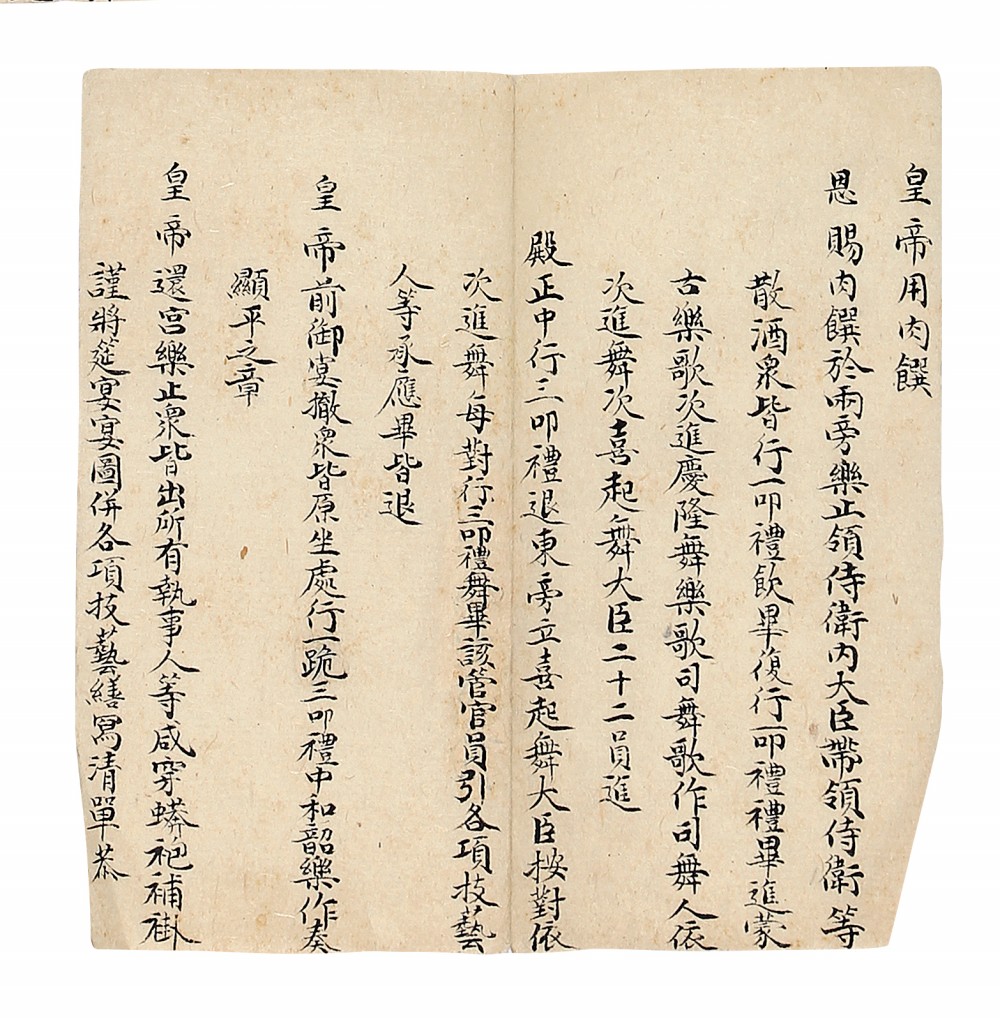 皇帝用肉饌
恩賜肉饌於兩旁樂止領侍衛內大臣帶領侍衛等
散酒衆皆行一叩禮飲畢復行一叩禮禮畢進蒙
古樂歌次進慶隆舞樂歌司舞歌作司舞人依
次進舞次喜起舞大臣二十二員進
殿正中行三叩禮退東旁立喜起舞大臣按對依
次進舞每對行三叩禮舞畢該管官員引各項技藝
人等承應畢皆退
皇帝前御宴撤衆皆原坐處行一跪三叩禮中和韶樂作奏
顯平之章
皇帝還宮樂止衆皆出所有執事人等咸穿蟒袍補褂
謹將筵宴宴圖併各項技藝繕寫清單恭